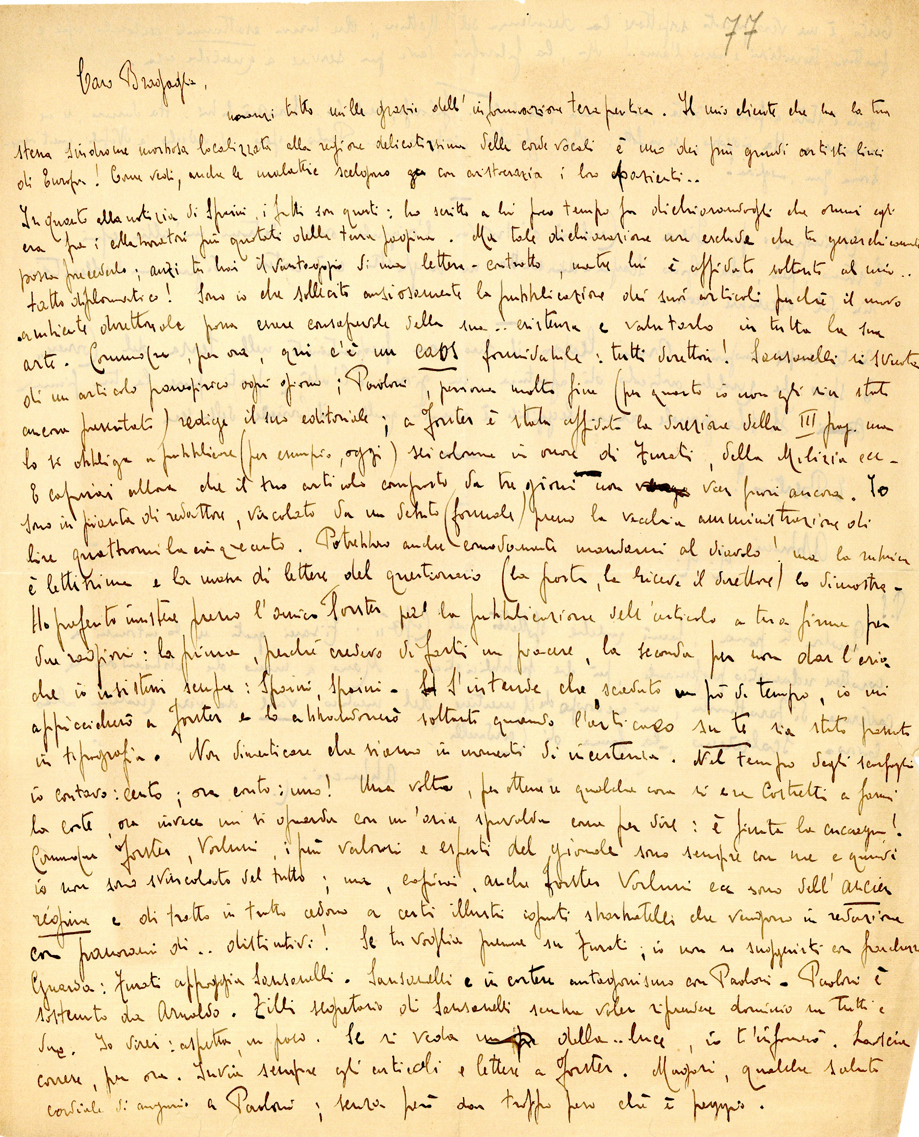 77
Caro Bragaglia,
innanzi tutto mille grazie dell'informazione terapeutica. Il mio cliente che ha la tua
stessa sindrome morbosa localizzata alla regione delicatissima delle corde vocali è uno dei più grandi artisti lirici
di Europa! Come vedi, anche le malattie scelgono con aristocrazia i loro pazienti..
In quanto alla notizia di Spaini, i fatti son questi: ho scritto a lui poco tempo fa dichiarandogli che ormai egli
era fra i collaboratori più quotati della terza pagina. Ma tale dichiarazione non esclude che tu gerarchicamente
possa precederlo; anzi tu hai il vantaggio di una lettera-contratto, mentre lui è affidato soltanto al mio..
tatto diplomatico! Sono io che sollecito ansiosamente la pubblicazione dei suoi articoli perchè il nuovo
ambiente direttoriale possa essere consapevole della sua.. esistenza e valutarlo in tutta la sua
arte. Comunque, per ora, qui c'è un caos formidabile: tutti direttori! Sansanelli si svuota
di un articolo panegirico ogni giorno; Paoloni, persona molto fine (per quanto io non gli sia stato
ancora presentato) redige il suo editoriale; a Forster è stata affidata la direzione della III pag. ma
lo si obbliga a pubblicare (per esempio, oggi) sei colonne in onore di Turati, della Milizia ecc-
E capirai allora che il tuo articolo composto da tre giorni non vien fuori ancora. Io
sono in pianta di redattore, vincolato da un debito (formale) presso la vecchia amministrazione di
lire quattromila cinquecento. Potrebbero anche comodamente mandarmi al diavolo! ma la rubrica
è lettissima e la massa di lettere del questionario (la posta, la riceve il direttore) lo dimostra-
Ho insistere presso l'amico Forster per la pubblicazione dell'articolo a tua firma per
due ragioni: la prima, perché credevo di farti un piacere, la seconda per non dar l'aria
che io insistessi sempre: Spaini, Spaini- S'intende che scaduto un pò di tempo, io mi
appiccicherò a Forster e lo abbandonerò soltanto quando l'articolo su te sia stato passato
in tipografia. Non dimenticare che siamo in momenti di incertezza. Nel tempo degli Scarfoglio
io contavo: cento; ora conto: uno! Una volta, per ottenere qualche cosa si era costretti a farmi
la corte, ora invece mi si guarda con un'aria spavalda come per dire: è finita la cuccagna!
Comunque Forster, i più valorosi e esperti del giornale sono sempre con me e quindi
io non sono svincolato del tutto; ma, capirai, anche Forster ecc sono dell'ancien
régime e di tratto in tratto cedono a certi illustri ignoti che vengono in redazione
con panorami di.. distintivi! Se tu voglia premere su Turati; io non so suggerirti con franchezza
Guarda: Turati appoggia Sansanelli. Sansanelli è in cortese antagonismo con Paoloni- Paoloni è
sostenuto da Arnaldo. Zilli segretario di Sansanelli sembra voler riprendere dominio su tutti e
due. Io direi: aspetta, un poco. Se si veda della.. luce, io t'informerò. Lascia
correre, per ora. Invia sempre gli articoli e lettere a Forster. Magari, qualche saluto
cordiale di augurio a Paoloni; senza però dar troppo peso chè è peggio.